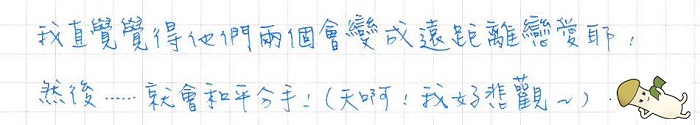 我直覺覺得他們兩個會變成遠距離戀愛耶!
然後……就會和平分手!(天啊!我好悲觀~)